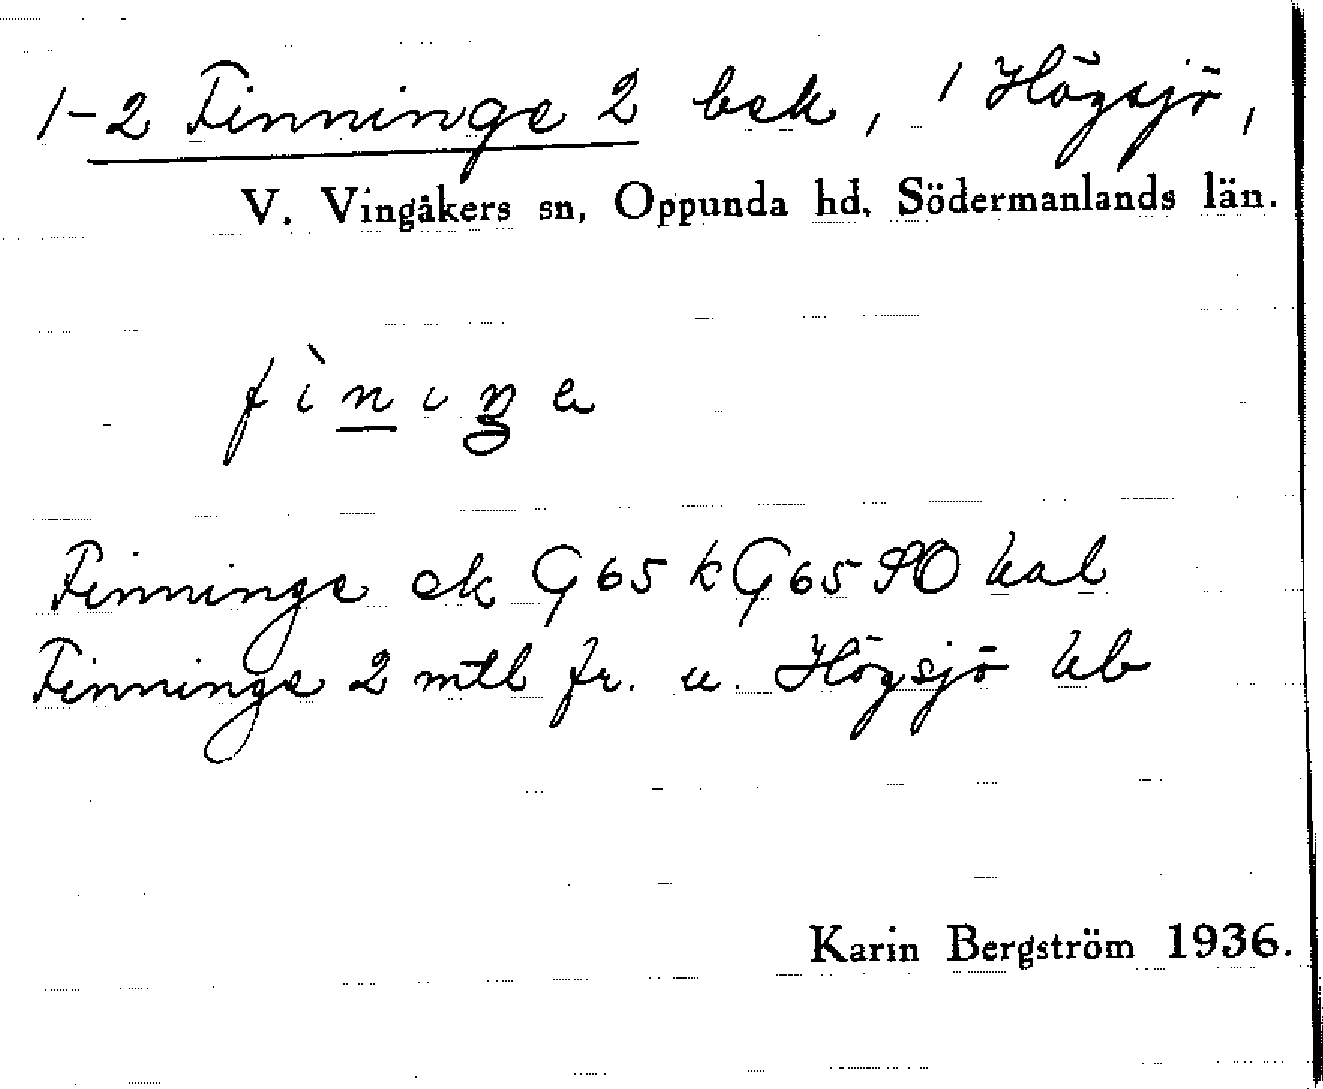 1-2 Finninge 2 bek, 1 Högsjö,
V. Vingåkers sn, Oppunda hd. Södermanlands län.
fìniŋe
Finninge ek G 65 k G 65 SO kal
Finninge 2 mtl fr. u. Högsjö kb
Karin Bergström 1936.